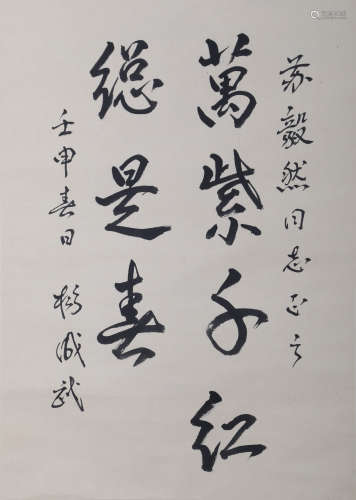 苏毅然同志正之
萬紫千红
總是春
壬申春日 杨成武